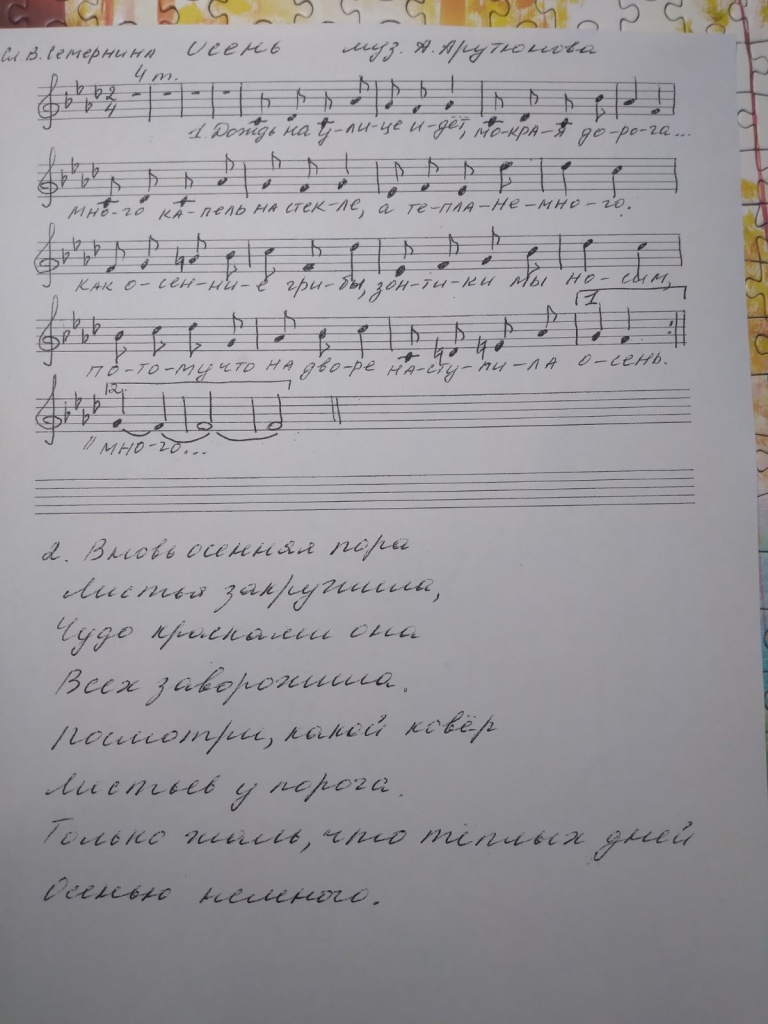 Сл. В. Семернина Осень муз. А. Арутюнова
4 т.
2
4
1. Дождь на у-ли-це и-дёт, мо-кра-я до-ро-га...
мно-го ка-пель на стек-ле, а те-пла-не-мно-го.
как о-сен-ни-е гри-бы, зон-ти-ки мы но-сим,
1
по-то-му что на дво-ре на-сту-пи-ла о-сень.
2.
" мно-го...
2. Вновь осенняя пора
Листья закружила,
Чудо красками она
Всех заворожила.
Посмотри, какой ковёр
Листьев у порога.
Только жаль, что тёплых дней
Осенью немного.